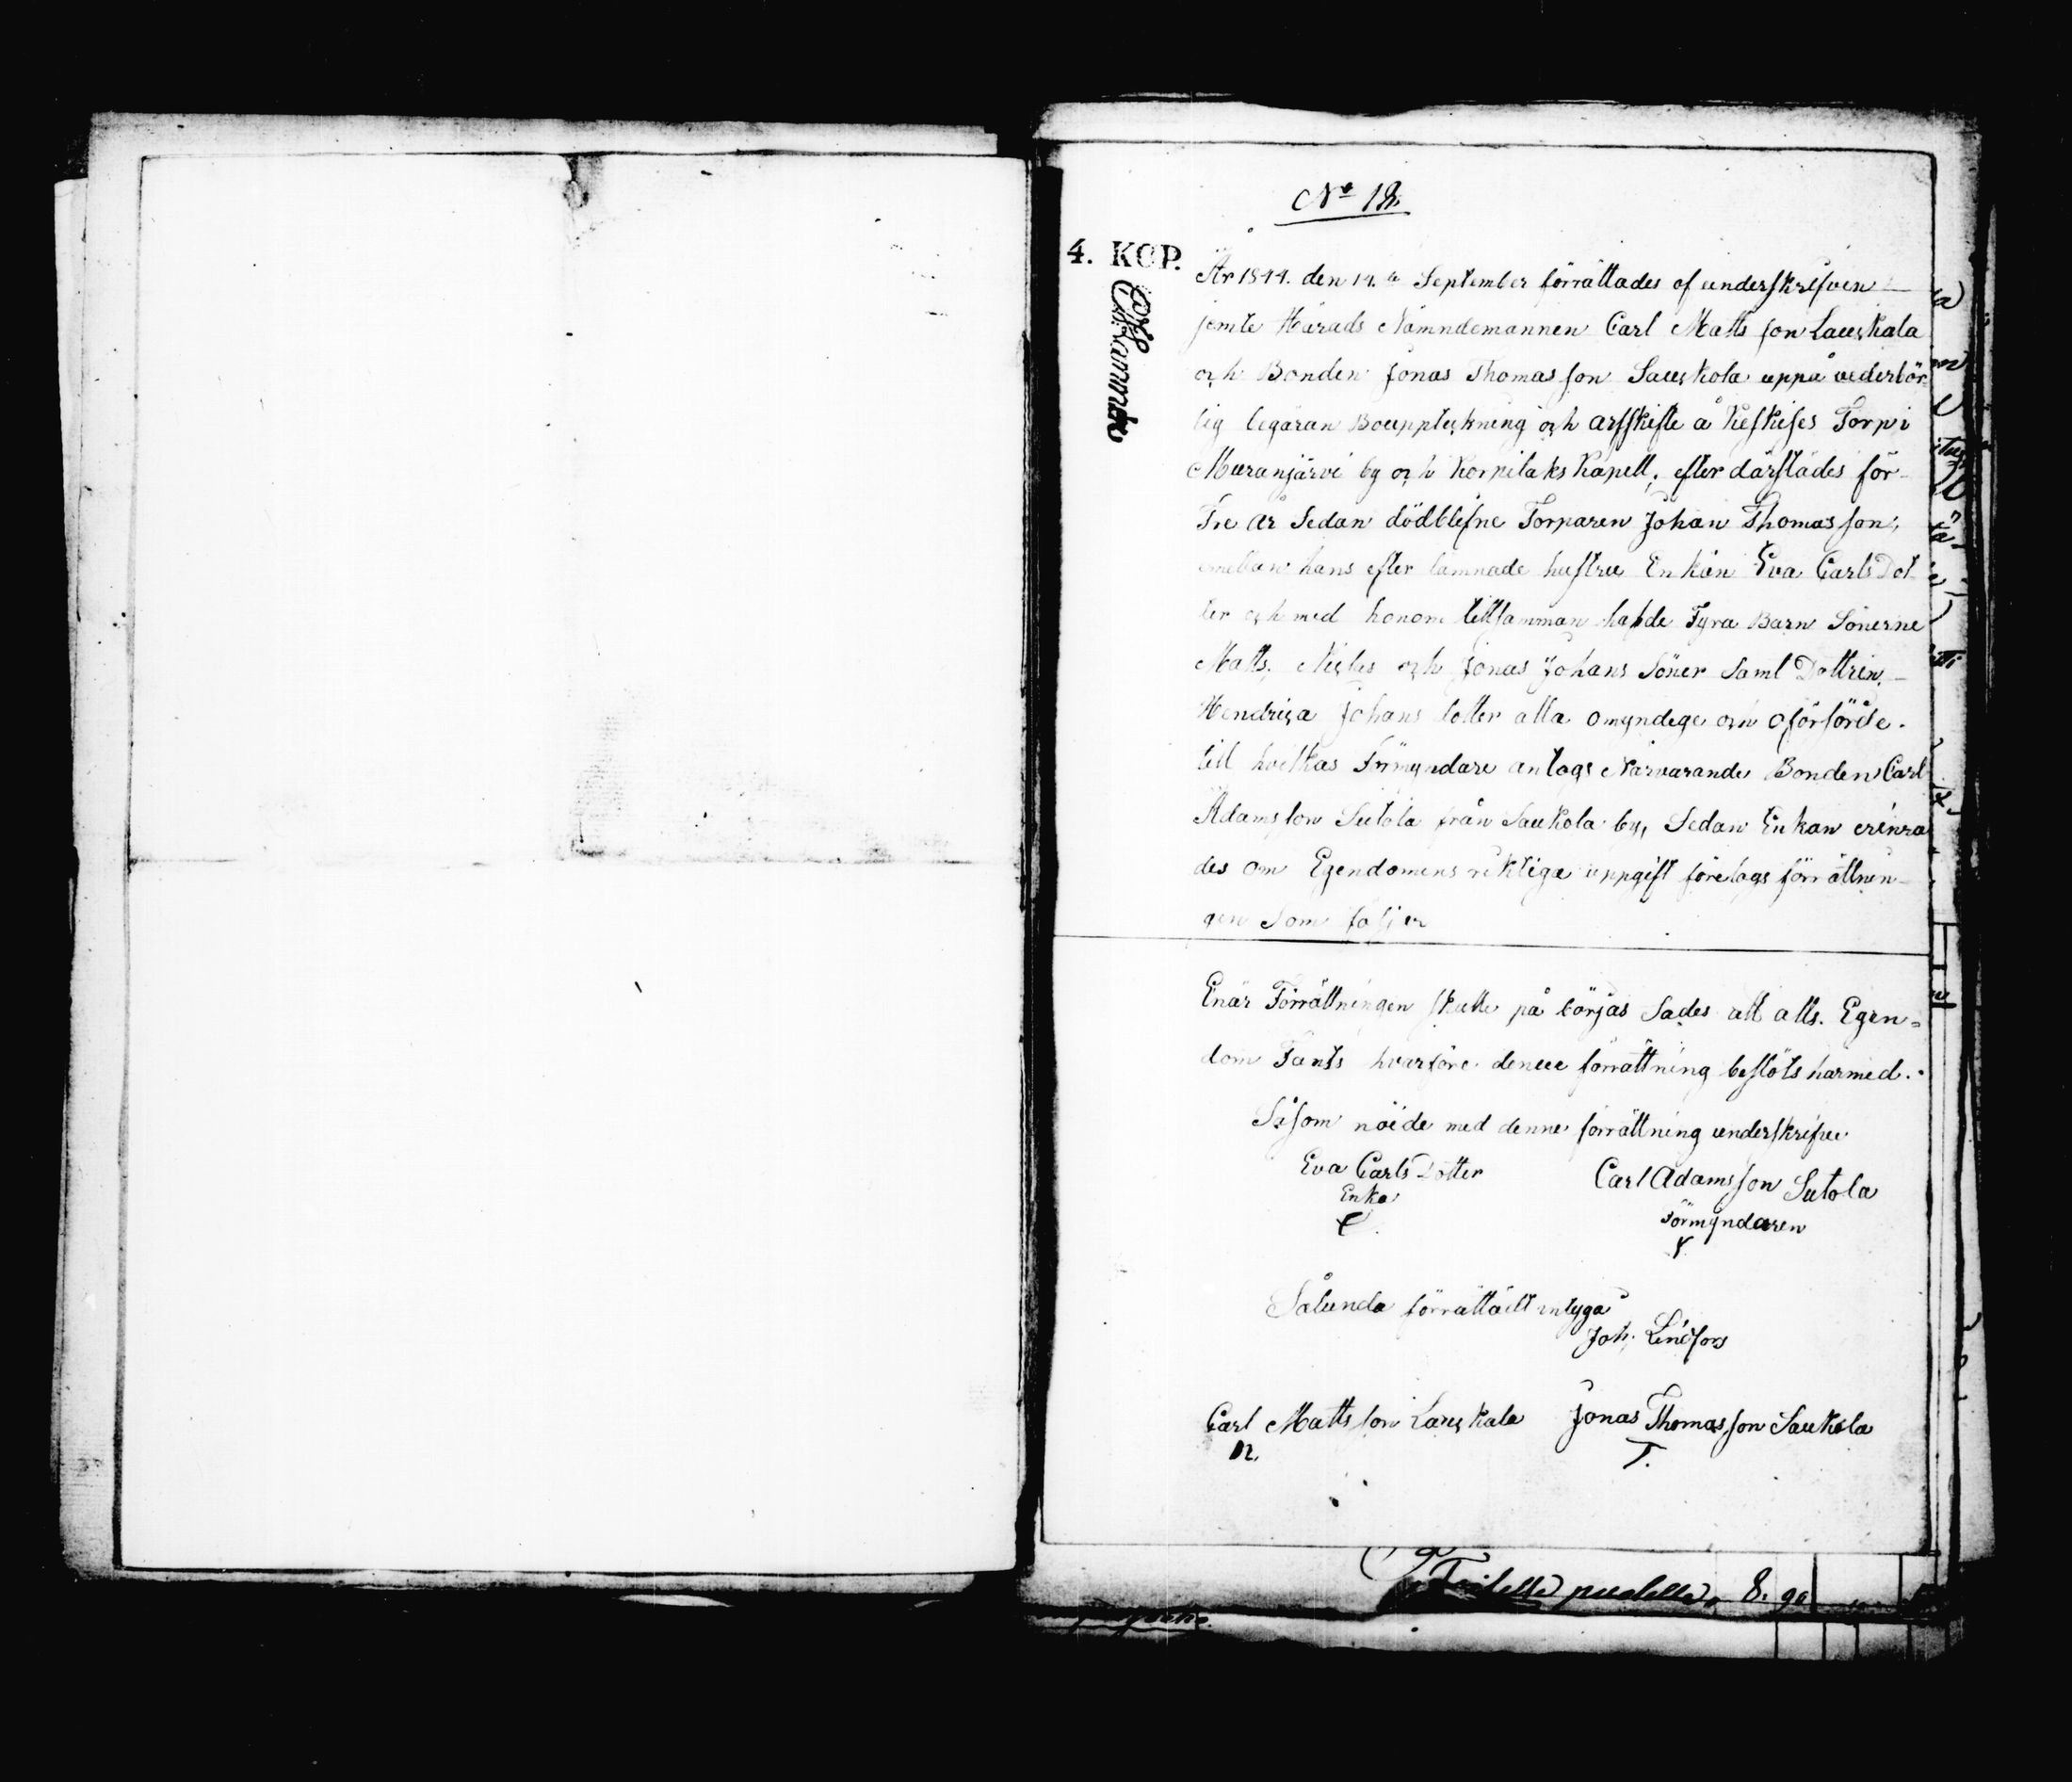 No 12.
4. KOP.
År 1844. den 14.de September förrättades af underskrifven
jemte Härads Nämndemannen Carl Matts son Lauckala
och Bonden Jonas Thomas son Sauckola uppå vederbör
lig begäran Bouppteckning och arfskifte å Keskises Torp i
Muranjärvi by och Korpilaks Kapell, efter därstädes för
Tre år Sedan dödblefne Torparen Johan Thomas son,
emellan hans efter lämnade hustru Enkan Eva Carls Dot
ter och med honom tillsamman hafde Fyra Barn Sönerne
Matts, Niclas och Jonas Johans Söner Samt Dottren
Hendrica Johans Dotter alla omyndege och oförsörde.
till hvilkas Förmyndare antogs Närvarande Bonden Carl
Adams son Sutola från Saukola by, Sedan Enkan erinra
des om Egendomens riktiga uppgift företogs förrättnin
gen Som följer
Enär Förrättningen skulle på börjas Sades att alls. Egen=
dom Fants hvarföre denne förrättning beslöts härmed.
Såsom nöide med denne förrättning underskrifve
Eva Carls Dotter Carl Adamsson Sutola
Enka Förmyndaren
Sålunda förrättadt intyga
Joh. Lindfors
Carl Matts son Lauckala Jonas Thomas son Saukola
T.
puolelle 8. 90